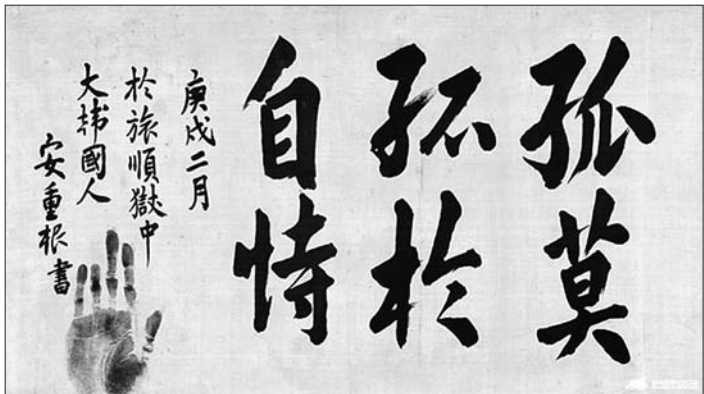 孤莫
孤於
自恃
庚戌二月
於旅順獄中
大韓國人
安重根書